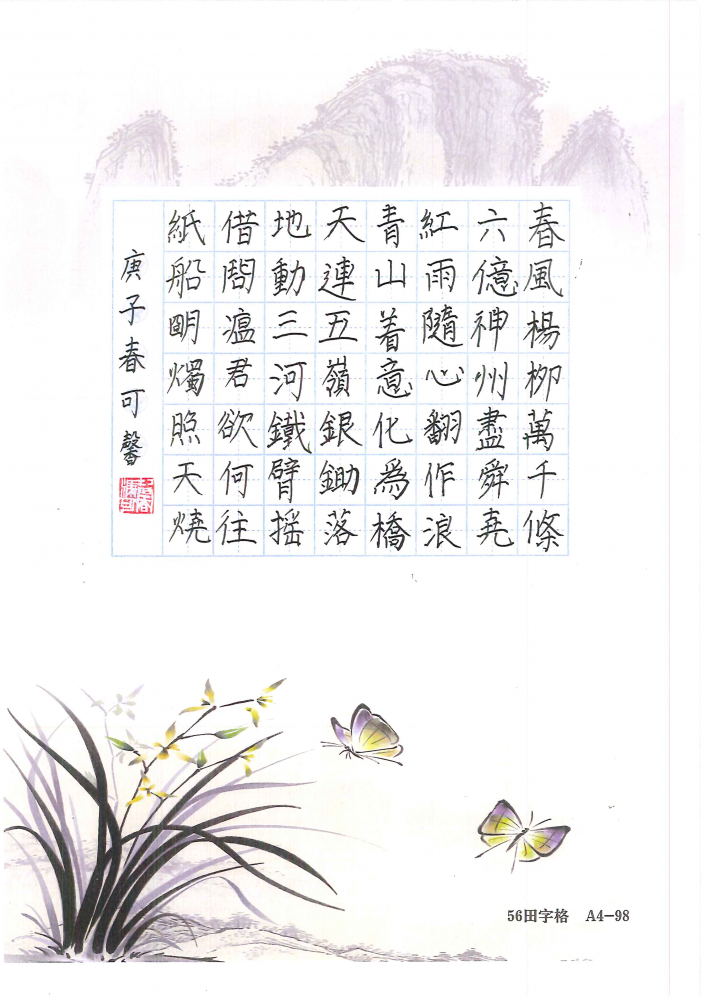 春風楊柳萬千條
六億神州盡舜堯
紅雨隨心翻作浪
青山着意化為橋
天連五嶺銀鋤落
地動三河鐵臂摇
借問瘟君欲何往
紙船明燭照天燒
庚子春可馨
56田字格 A4-98